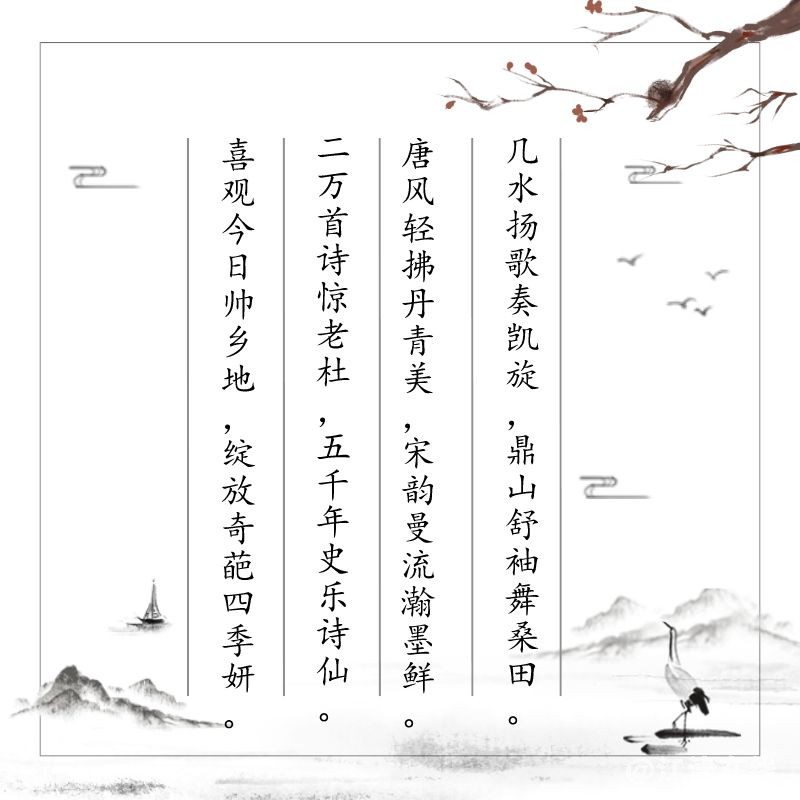 几水扬歌奏凯旋，鼎山舒袖舞桑田。
唐风轻拂丹青美，宋韵曼流瀚墨鲜。
二万首诗惊老杜，五千年史乐诗仙。
喜观今日帅乡地，绽放奇葩四季妍。